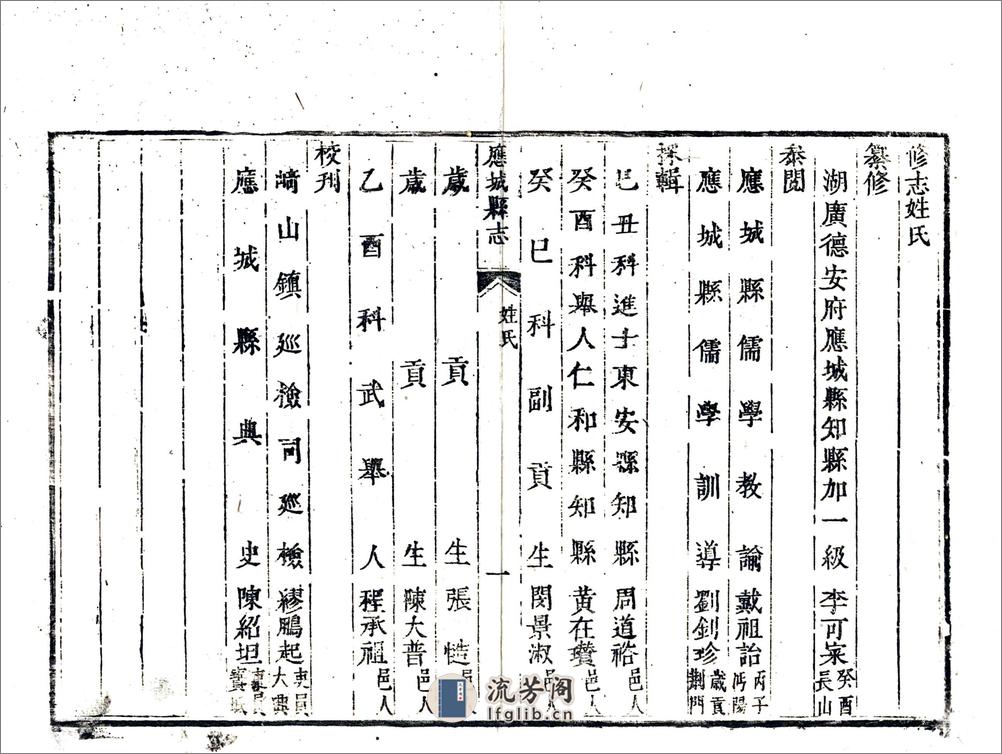 修志姓氏
纂修
湖廣德安府應城縣知縣加一級李可寀癸酉長山
叅閱
應城縣儒學教諭戴祖詒丙子沔陽
應城縣儒學訓導劉釗珍歲貢荆門
採輯
己丑科進士東安縣知縣周道祫邑人
癸酉科舉人仁和縣知縣黃在瓚邑人
癸巳科副貢生閔景淑邑人
應城縣志
姓氏
一
歲貢生張㦃邑人
歲貢生陳大普邑人
乙酉科武舉人程承祖邑人
校刊
﨑山鎮廵檢司廵檢繆鵬起吏員大興
應城縣典史陳紹坦吏員
流芳阁
lfglib.cn